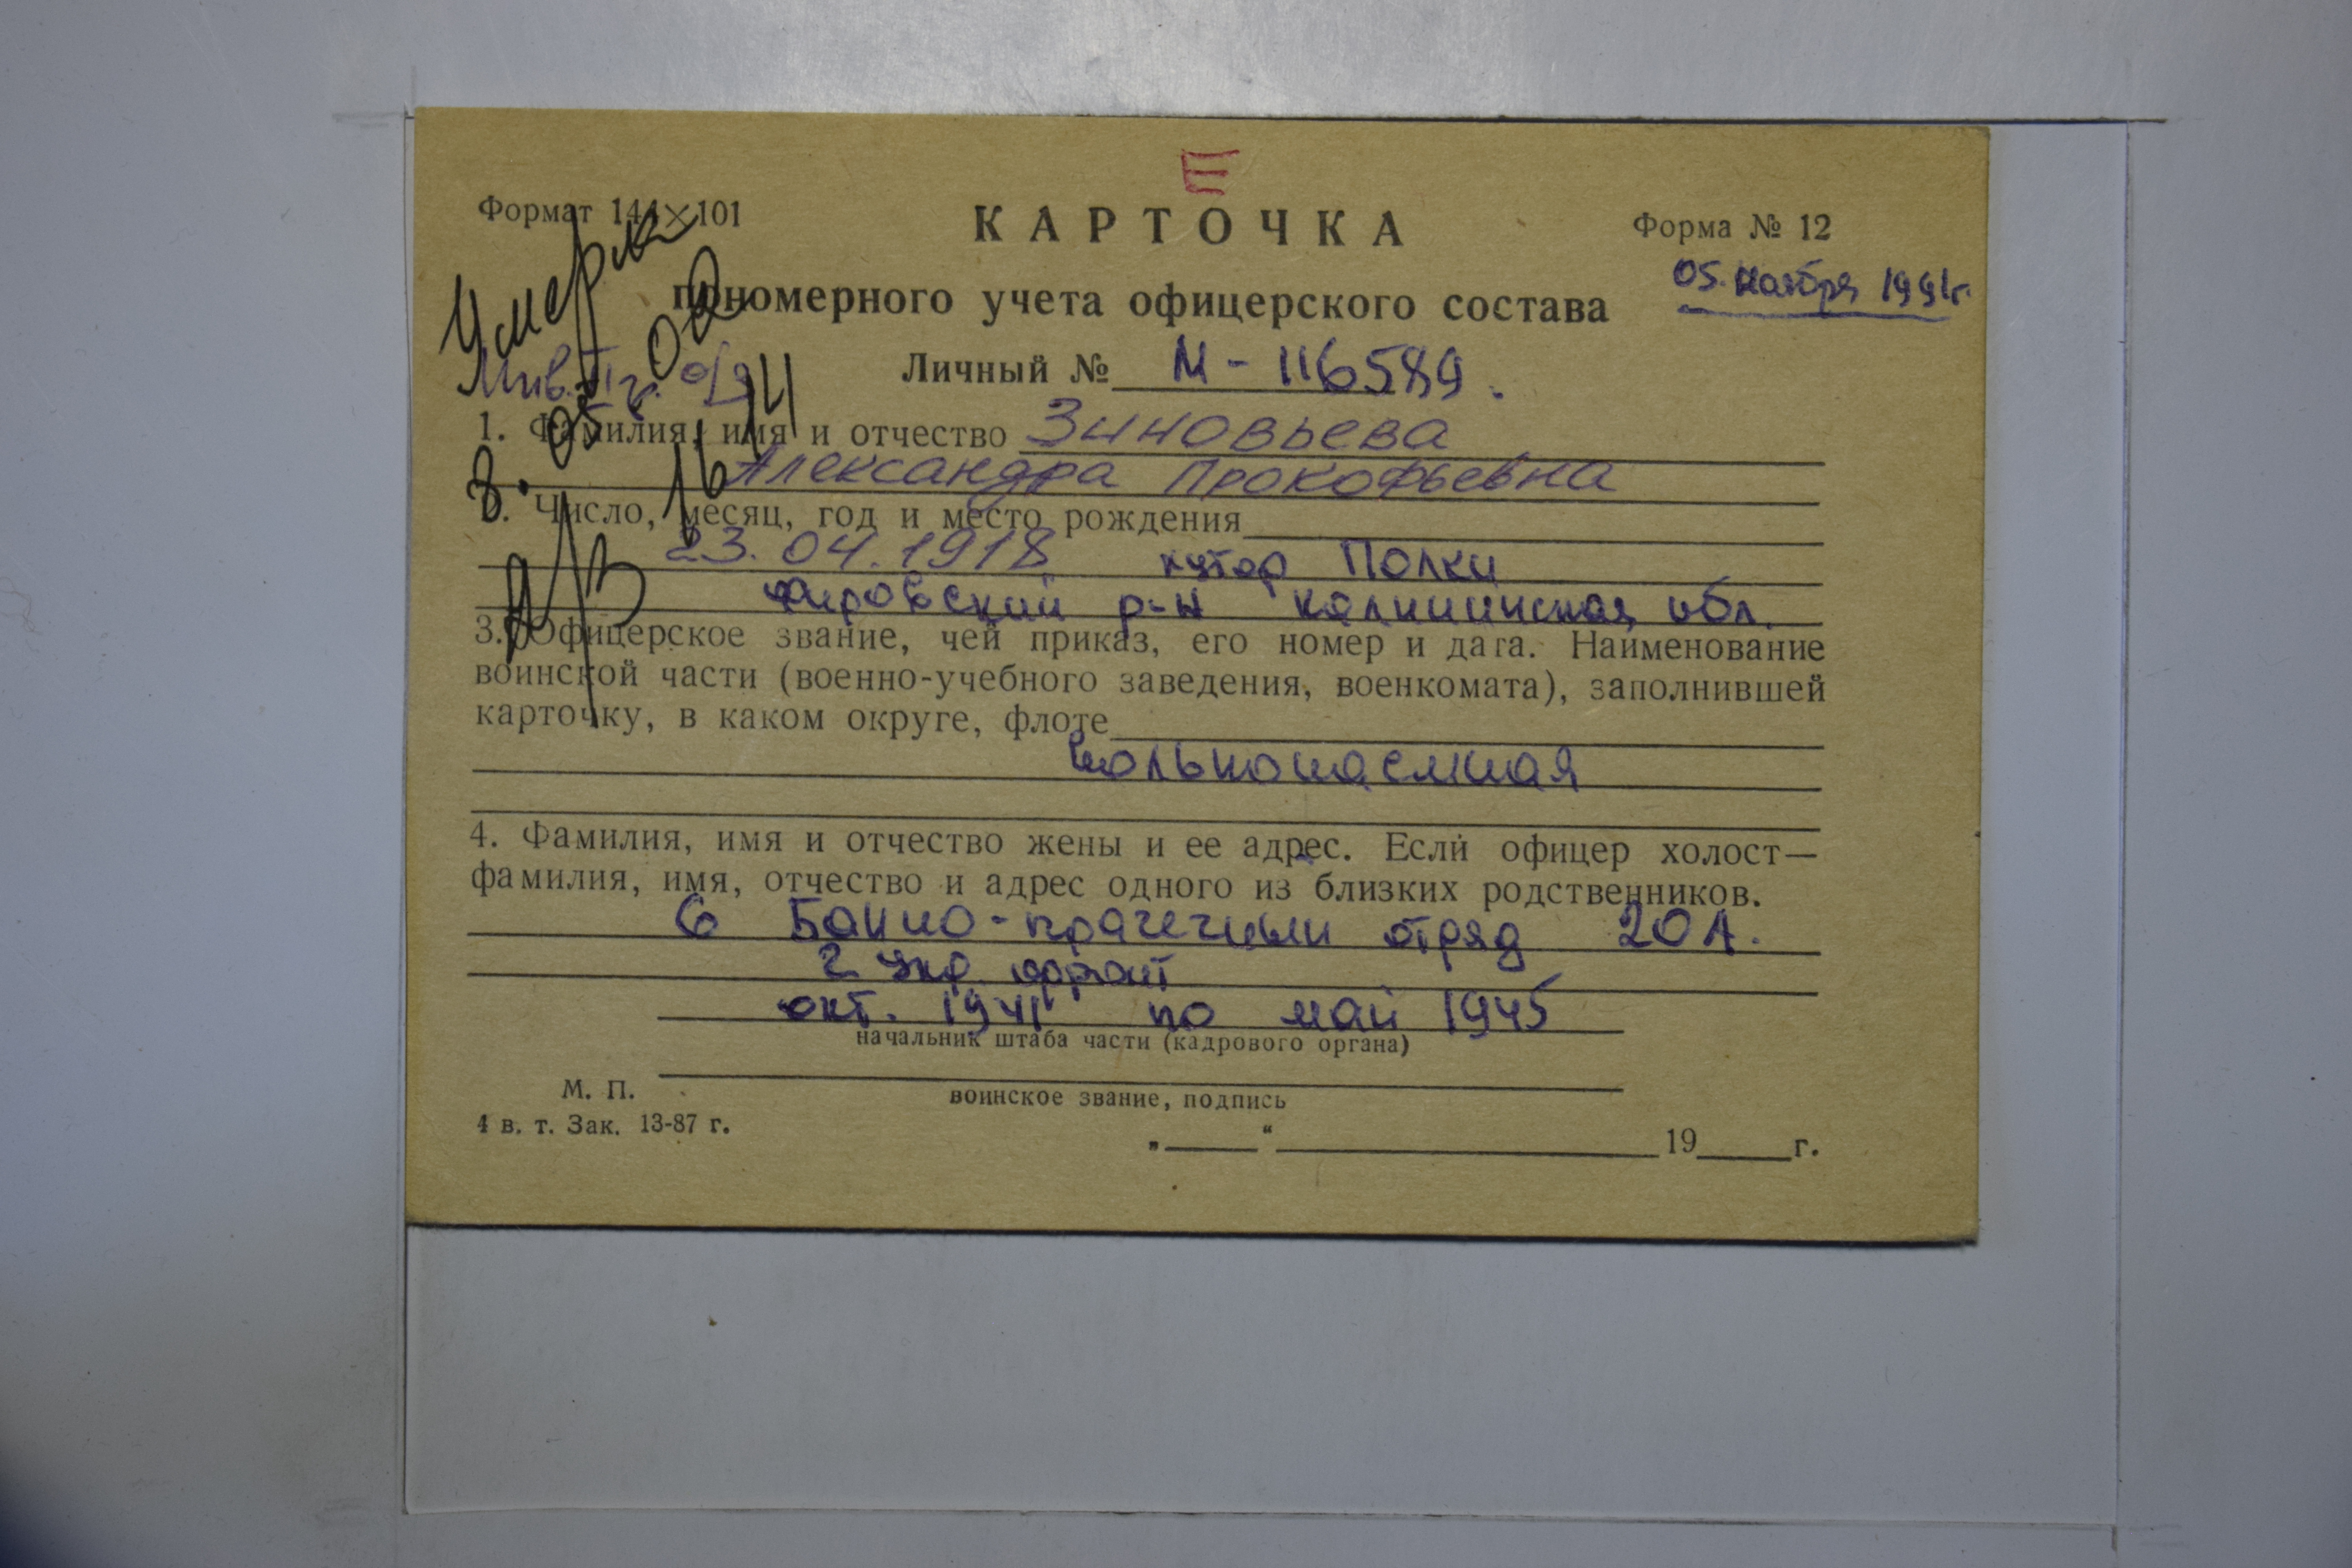 Е
Формат 144×101
КАРТОЧКА
Форма № 12
пономерного учета офицерского состава
05. ноября 1991г.
Умерла
Инв. II гр. о/з
Личный № М - 116589.
1. Фамилия, имя и отчество Зиновьева
Александра Прокофьевна
2. Число, месяц, год и место рождения
23.04.1918 хутор Полки
Фировский р-н Калининская обл.
3. Офицерское звание, чей приказ, его номер и дата. Наименование
воинской части (военно-учебного заведения, военкомата), заполнившей
карточку, в каком округе, флоте
вольнонаемная
4. Фамилия, имя и отчество жены и ее адрес. Если офицер холост—
фамилия, имя, отчество и адрес одного из близких родственников.
6 Банно-прачечный отряд 20 А.
2 Укр фронт
окт. 1941 по май 1945
начальник штаба части (кадрового органа)
М. П.
воинское звание, подпись
4 в. т. Зак. 13-87 г.
„ “ 19 г.